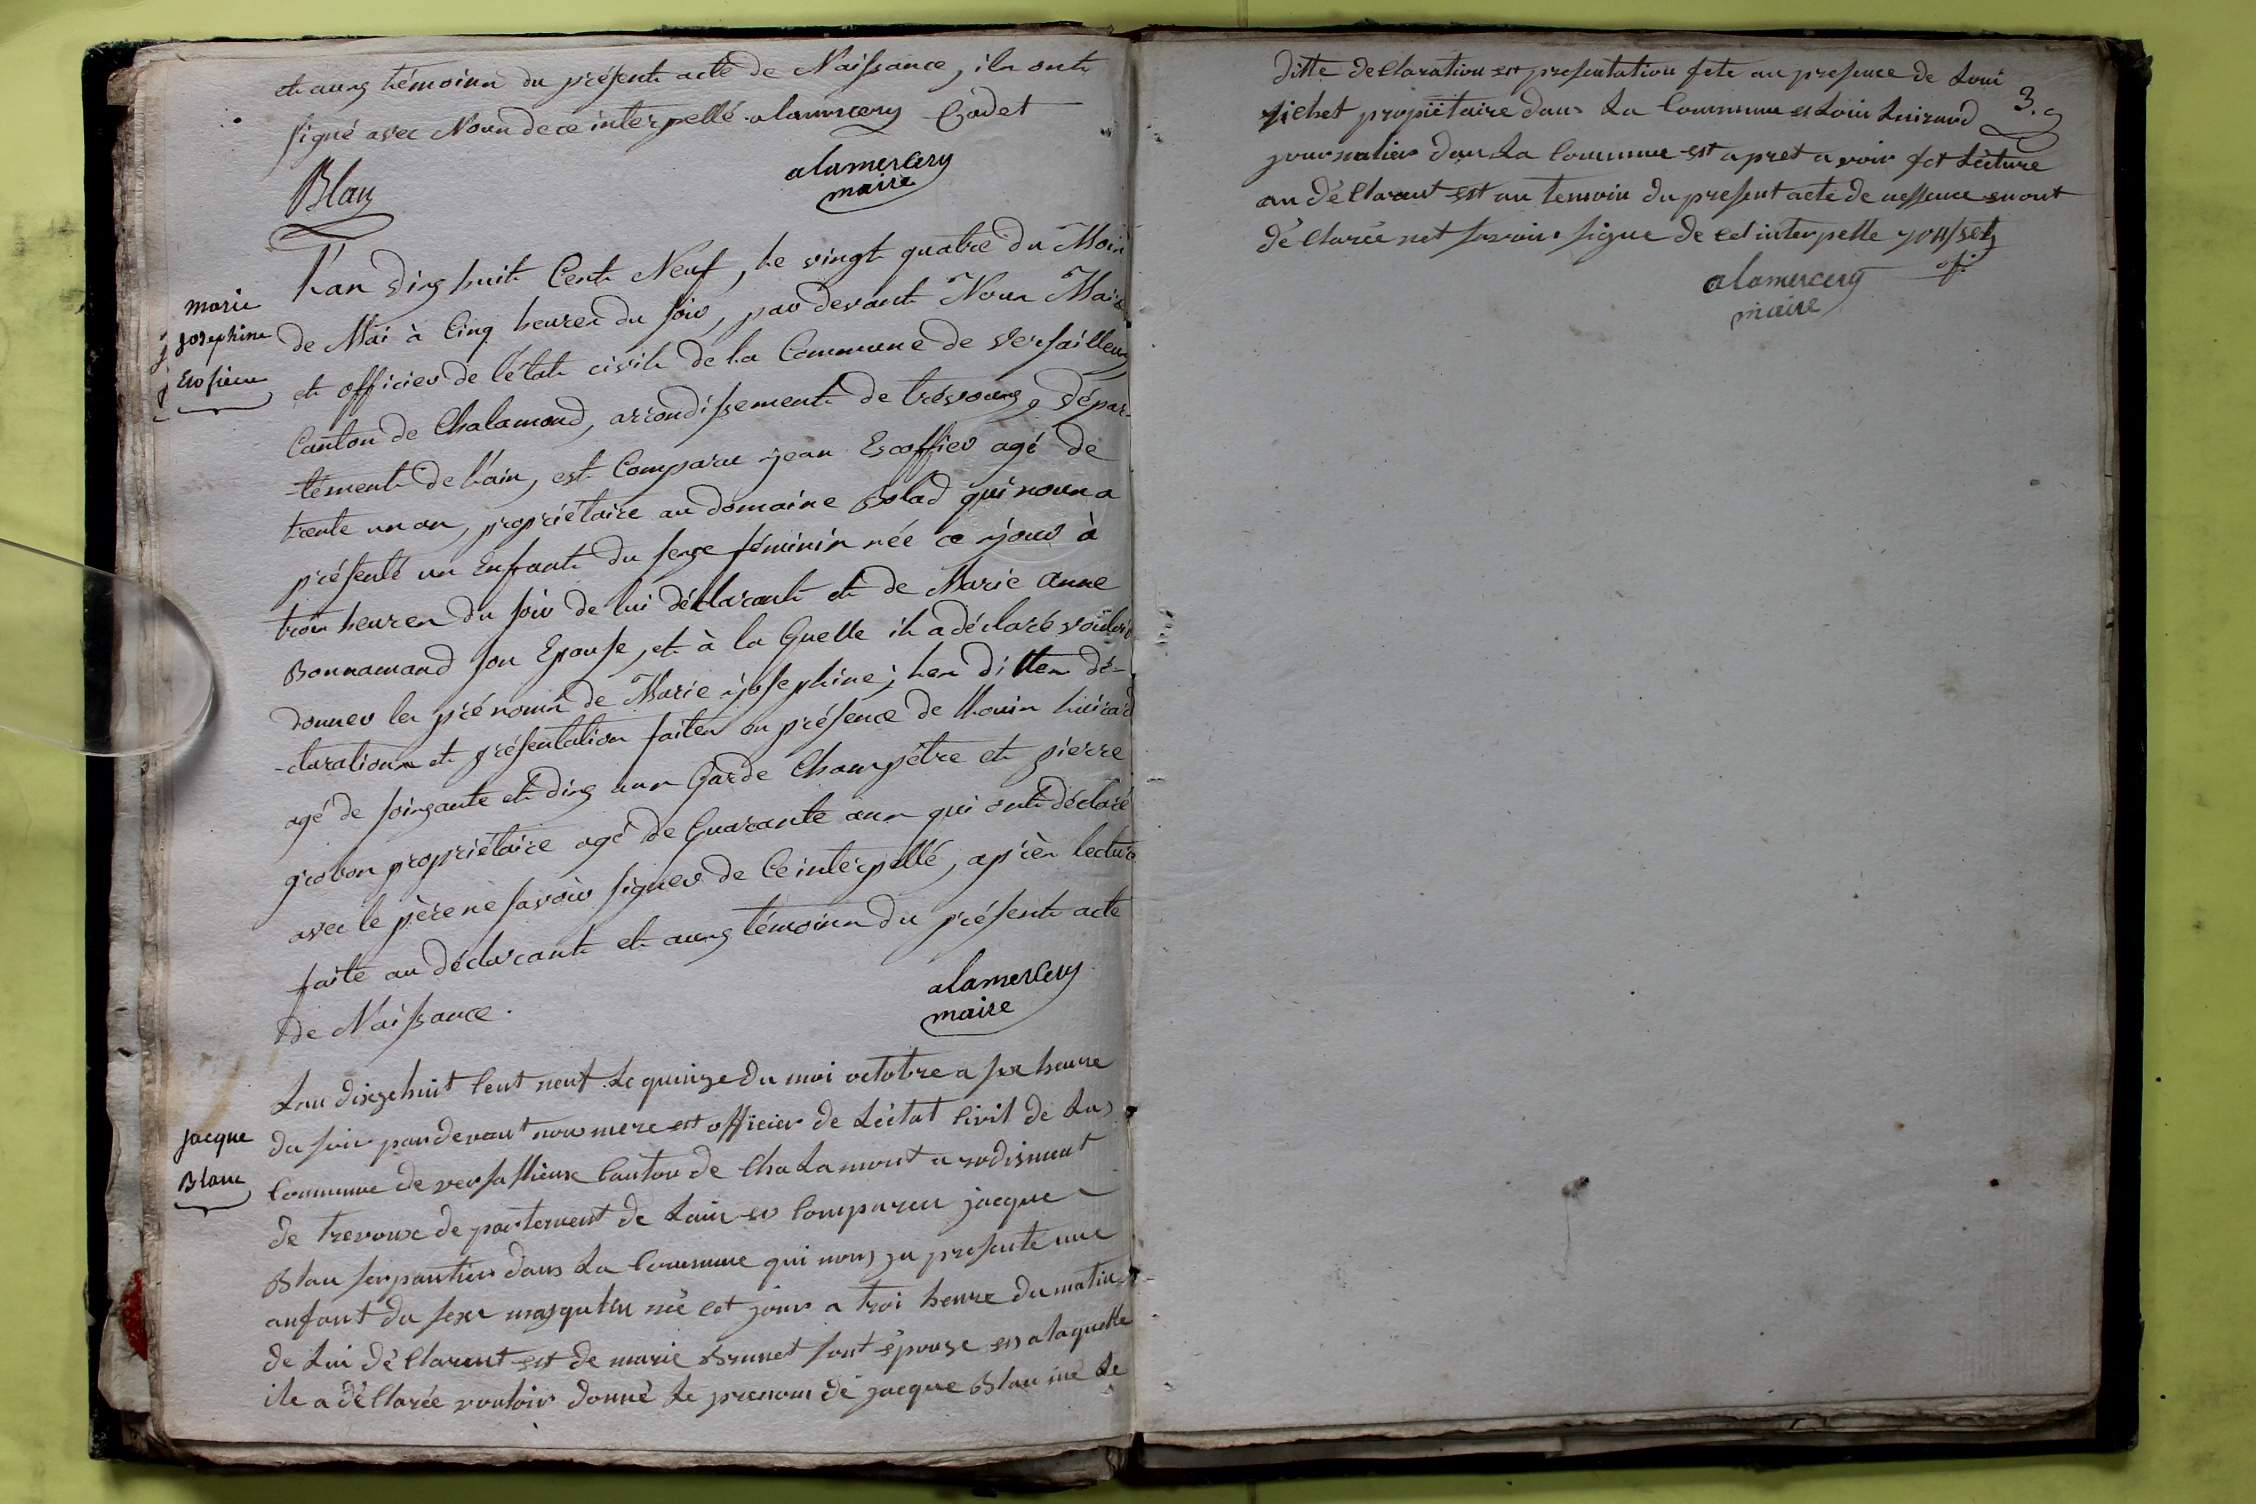 et aux témoins du présent acte de Naissance, ils ont
signé avec Nous de ce interpellé. alamercery Cadet
Blanc
alamercery
maire
marie
josephine
Escofier
L'an dix huit Cent Neuf, le vingt quatre du Mois
de Mai à Cinq heures du soir, par devant Nous Maire
et officier de l'état civil de la Commune de Versailleux,
Canton de Chalamond, arrondissement de trévoux, dépar-
-tement de l'ain, est Comparu jean Escoffier agé de
trente un an, propriétaire au domaine Bolad qui nous a
présenté un Enfant du sexe féminin née ce jour à
trois heures du soir de lui déclarant et de Marie Anne
Bonnamand son Epouse, et à la Quelle il a déclaré vouloir
donner les prénoms de Marie josephine; les dittes dé-
-clarations et présentation faites en présence de Louis
agé de soixante et dix ans Garde Champêtre et pierre
grobon propriétaire agé de Quarante ans qui ont déclaré
avec le père ne savoir signer de Ce interpellé, après lecture
faite au déclarant et aux témoins du présent acte
de Naissance.
alamercery
maire
jacque
Blanc
Lan dixzehuit Cent neuf Le quinze du moi octobre a six heure
du soir pardevant nous mere est officier de Létat Civil de La
Commune de versallieux Canton de ChaLamont a rodisment
de trevoux de partement de Lain es Comparu jacque
Blan serpantier dans La Commune qui nous za presente une
anfant du sexe masqulin née cet jour a troi heure du matin
de Lui déClarent est de marie Brunet sont épouze es a laquelle
ile a déClarée vouloir donné Le prenom de jacque Blan Le
ditte deClaration est presentation fete an presence de Loui
sichet propiétaire dans La Commune es Loui
3.
journalier dan La Commune est apret avoir fet Lecture
au déClarant est au temoin du present acte de nessence
déClarée net savoir signe de cet interpelle
alamercery
maire